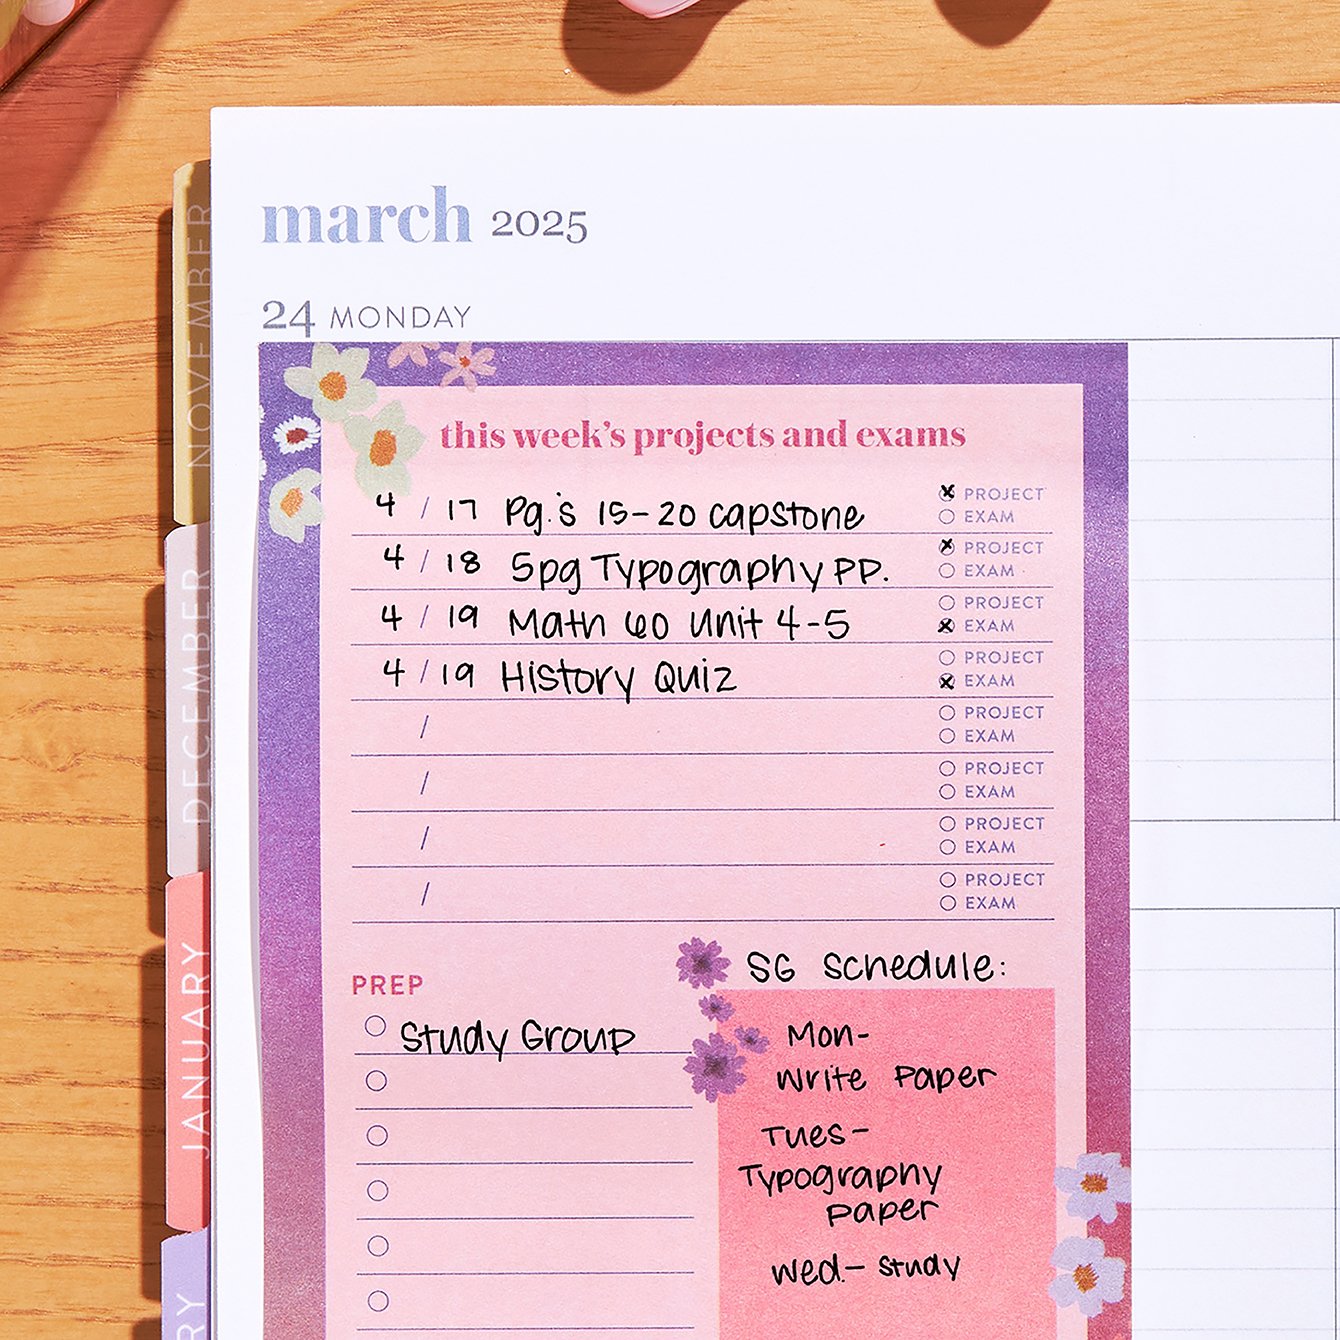 march 2025
24 MONDAY
this week's projects and exams
4 / 17 Pg.'s 15-20 capstone
PROJECT
EXAM
4 / 18 5pg Typography PP.
PROJECT
EXAM
4 / 19 Math 60 Unit 4-5
PROJECT
EXAM
4 / 19 History Quiz
PROJECT
EXAM
/
PROJECT
EXAM
/
PROJECT
EXAM
/
PROJECT
EXAM
/
PROJECT
EXAM
PREP
Study Group
SG Schedule:
Mon-
Write Paper
Tues-
Typography
paper
Wed.- study
NOVEMBER
DECEMBER
JANUARY
RY